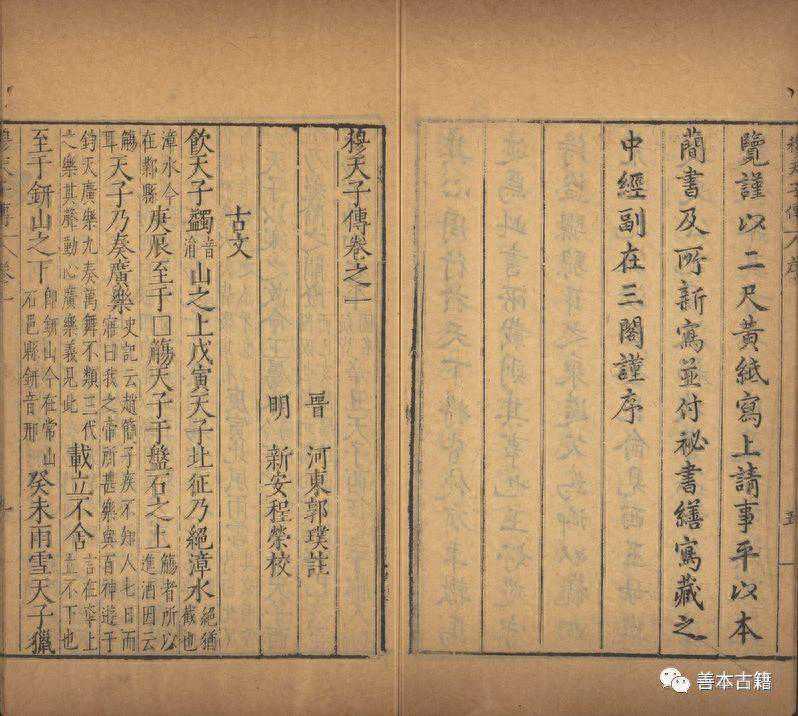 覽謹以二尺黃紙寫上請事平以本
蕳書及所新寫並付祕書繕寫藏之
中經副在三閣謹序
五
穆天子傳卷之一
晉　河東郭璞註
明　新安程榮校
古文
飲天子蠲音涓山之上戊寅天子北征乃絕漳水絕猶截也
漳水今在鄴縣庚辰至于□觴天子于盤石之上觴者所以進酒因云
觴耳天子乃奏廣樂史記云趙簡子疾不知人七日而寤曰我之帝所甚樂與百神遊于
鈞天廣樂九奏萬舞不類三代之樂其聲動心廣樂義見此載立不舍言在車上立不下也
至于鈃山之下即鈃山今在常山石邑縣鈃音邢癸未雨雪天子獵
善本古籍